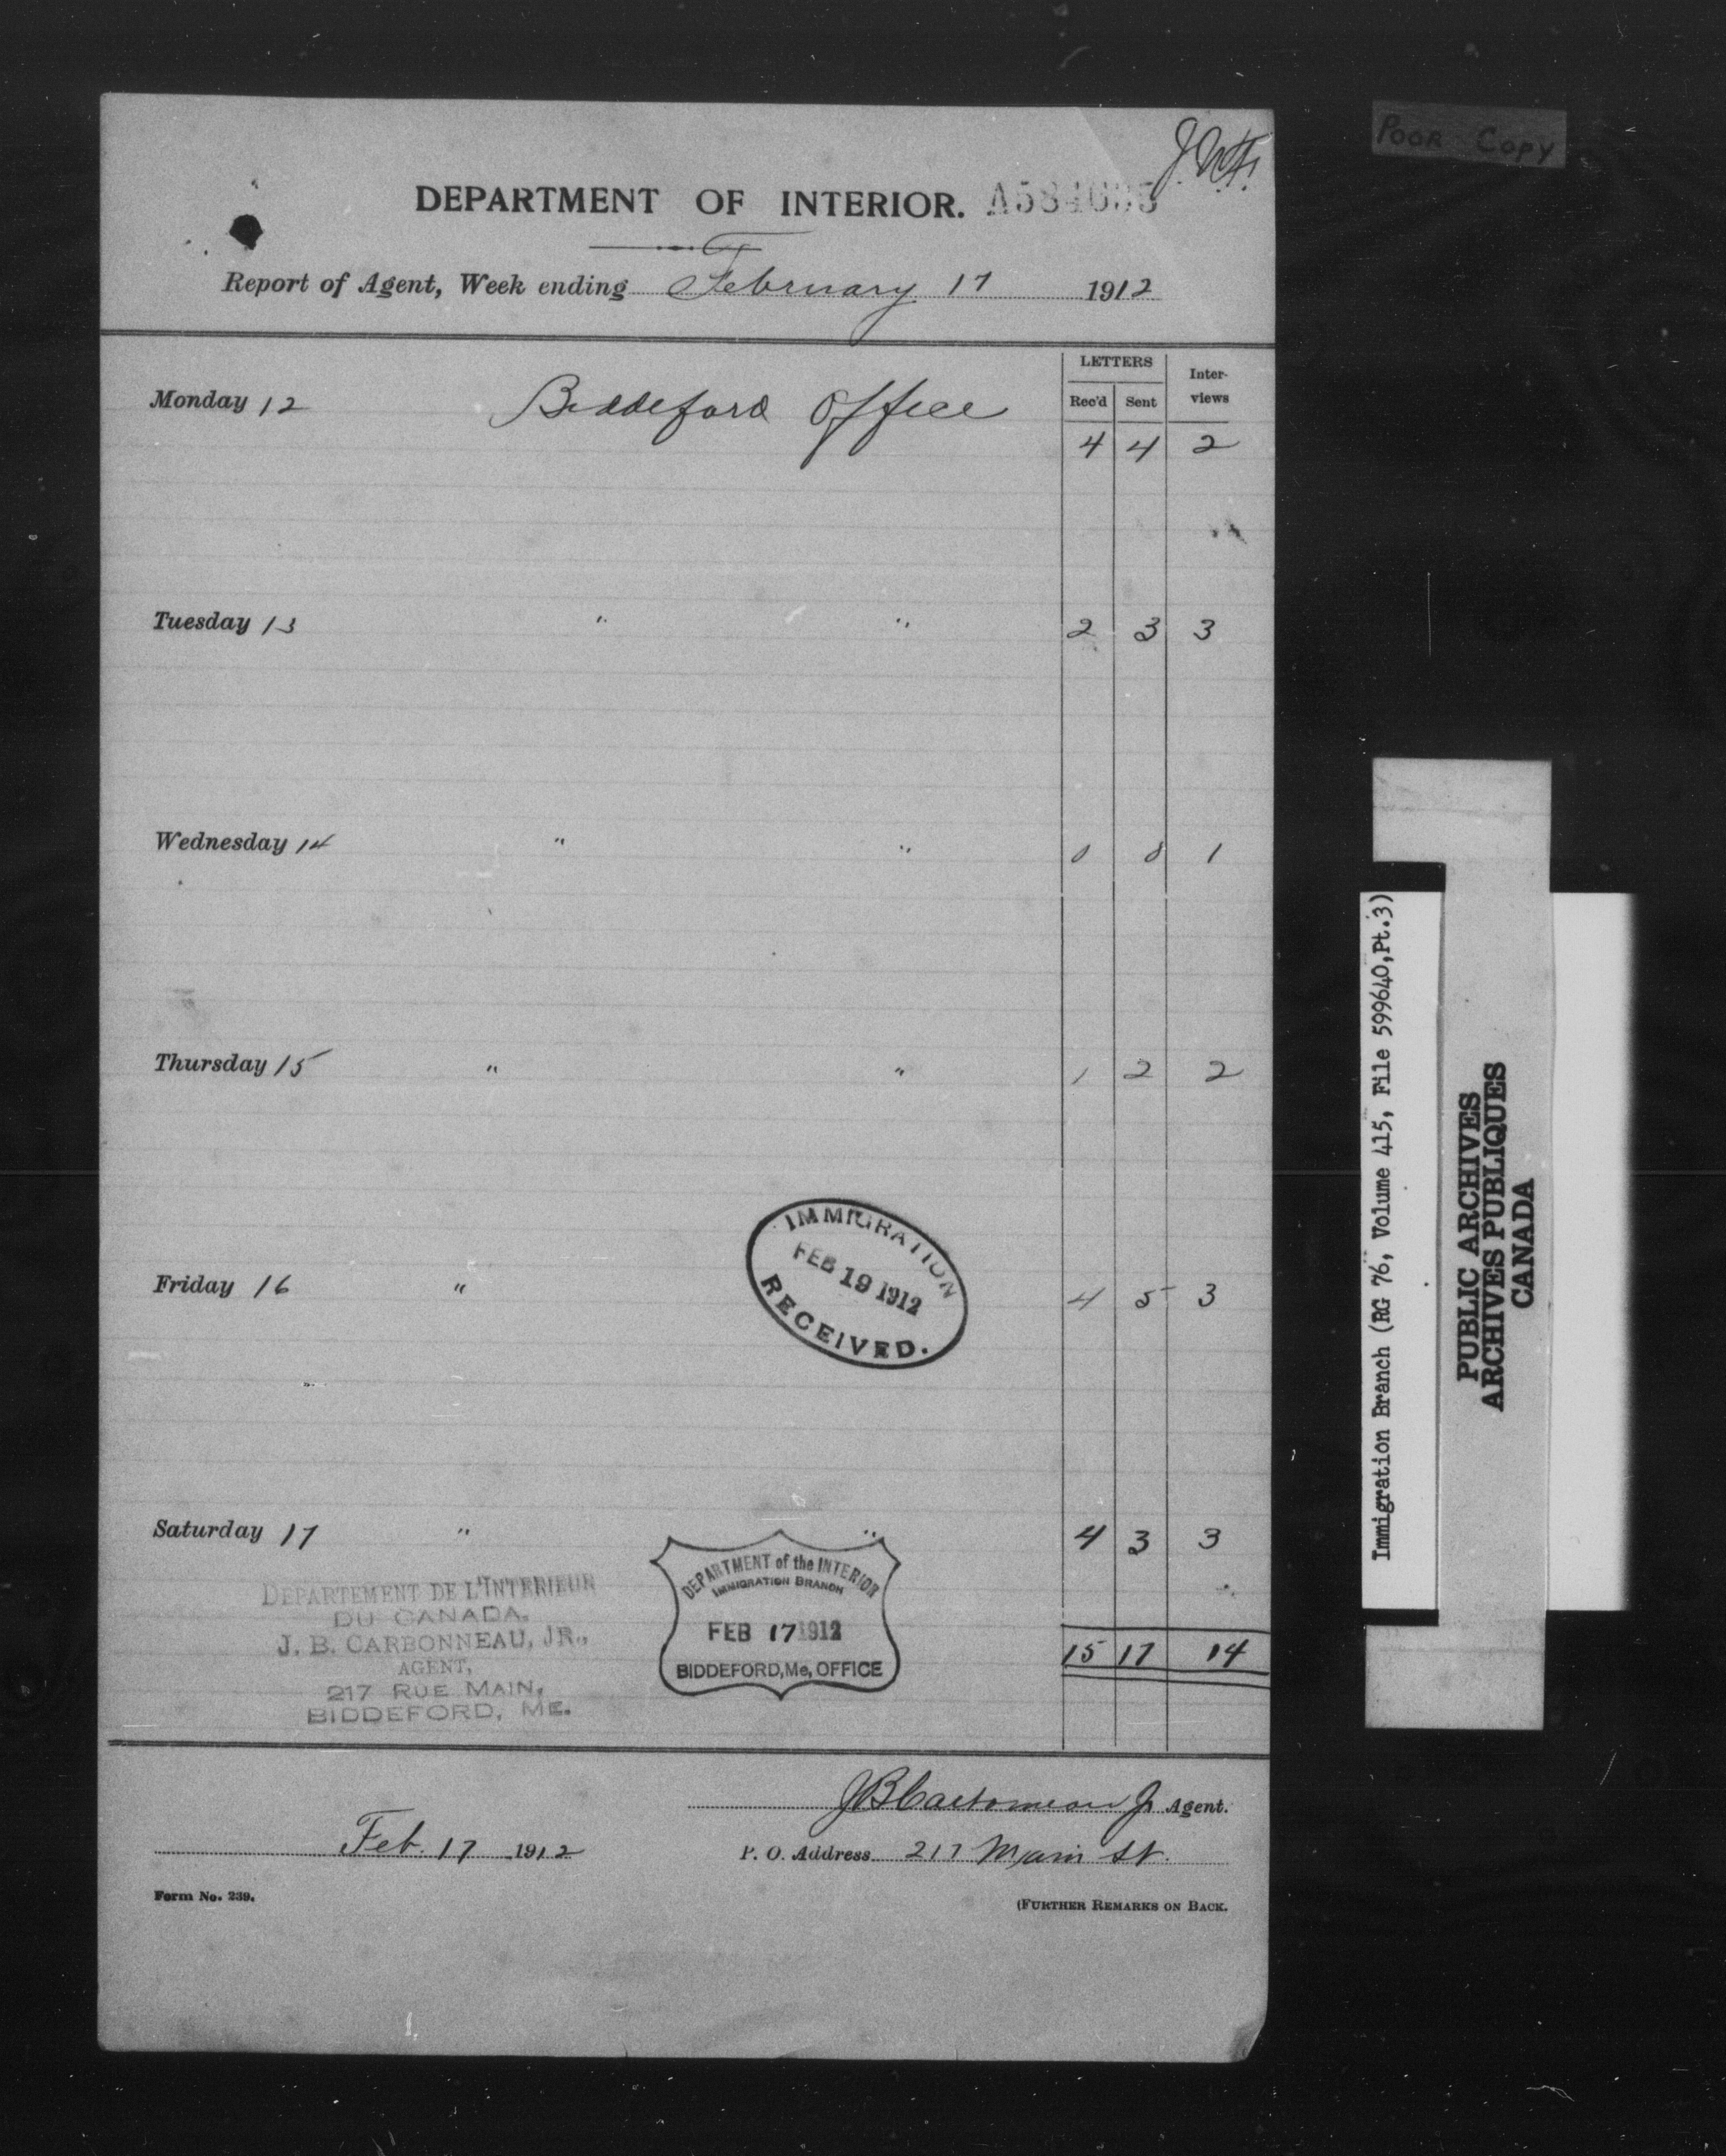 POOR COPY
DEPARTMENT OF INTERIOR.
Report of Agent, Week ending February 17 1912
LETTERS Inter-views
Rec'd Sent
Monday 12 Biddeford Office 4 4 2
Tuesday 13 " " 2 3 3
Wednesday 14 " " 0 0 1
Thursday 15 " " 1 2 2
Friday 16 " 4 5 3
IMMIGRATION
FEB 19 1912
RECEIVED.
Saturday 17 " " 4 3 3
15 17 14
DEPARTEMENT DE L'INTERIEUR
DU CANADA.
J. B. CARBONNEAU, JR.,
AGENT,
217 RUE MAIN,
BIDDEFORD, ME.
DEPARTMENT of the INTERIOR
IMMIGRATION BRANCH
FEB 17 1912
BIDDEFORD, Me, OFFICE
J B Carbonneau Jr Agent.
Feb. 17 1912 P. O. Address 217 Main St.
Form No. 239. (FURTHER REMARKS ON BACK.
Immigration Branch (RG 76, Volume 415, File 599640,Pt.3)
PUBLIC ARCHIVES
ARCHIVES PUBLIQUES
CANADA